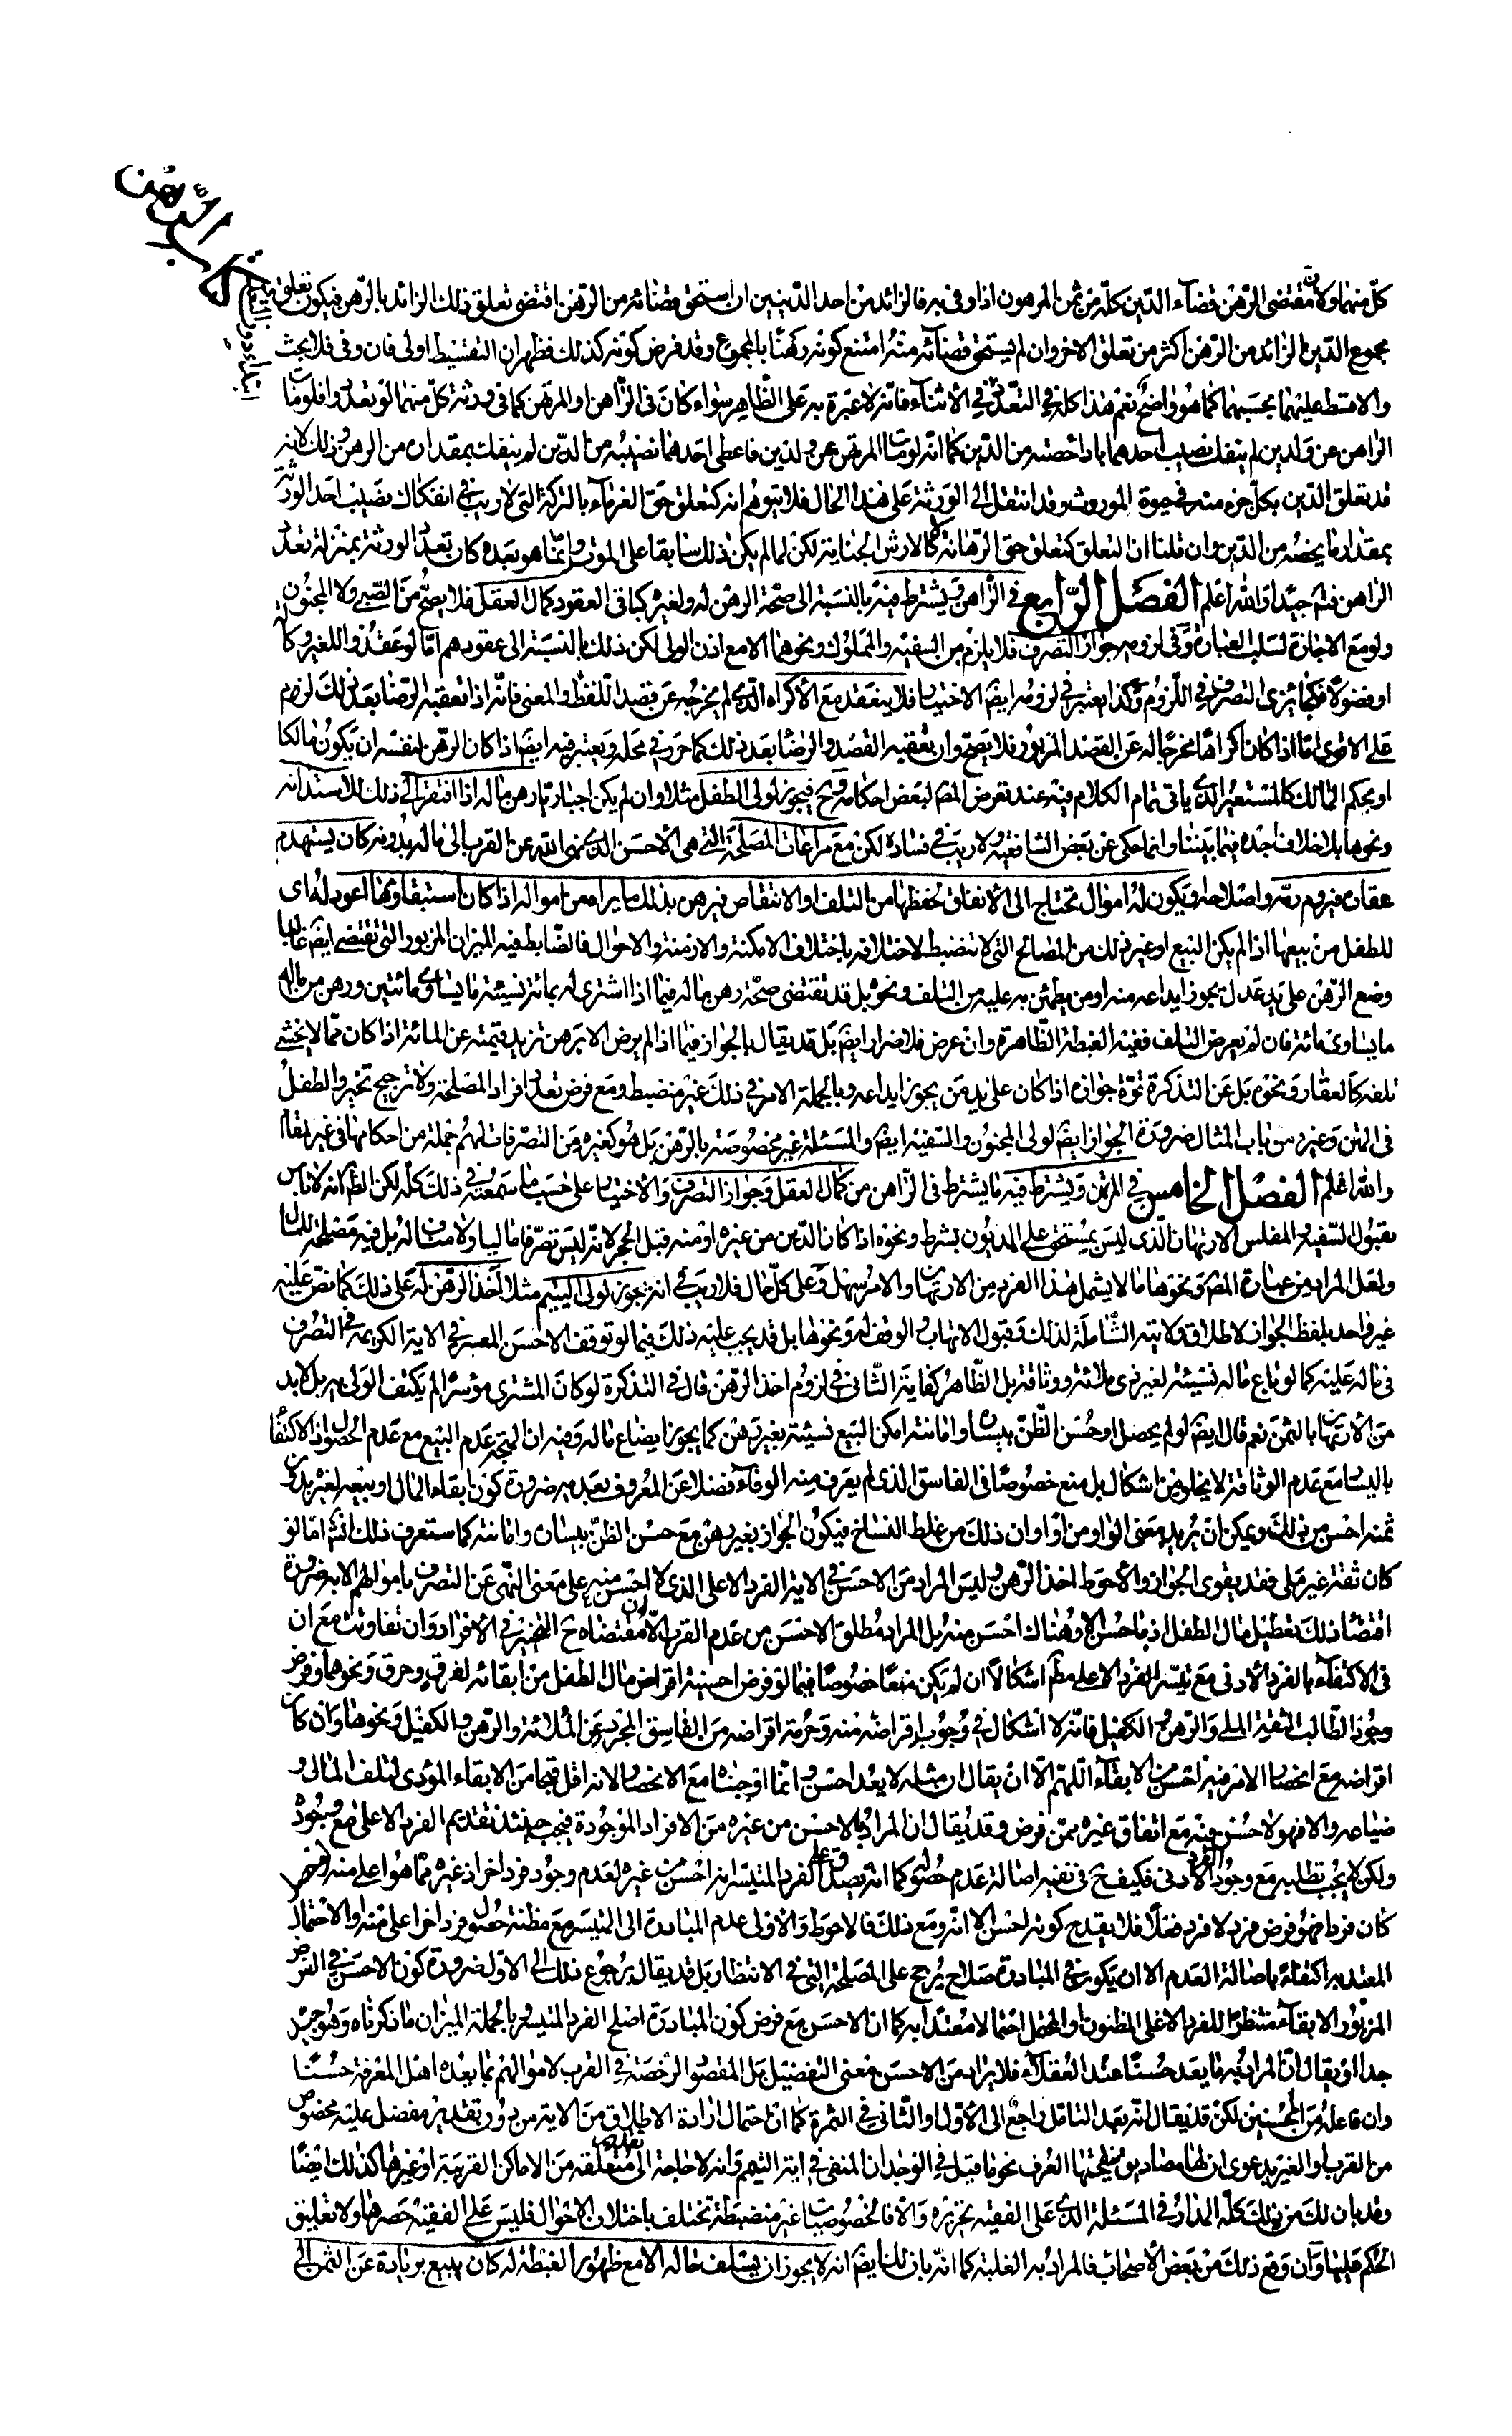 كتاب الرهن
كلّ منهما ولان مقتضى الرّهن قضاء الدّين كلّه من ثمن المرهون اذا وفى به فالزائد من احد الدّينين ان استحق قضائه من الرّهن اقتضى تعلق ذلك الزائد بالرّهن فيكون تعلق
مجموع الدّين الزائد من الرّهن اكثر من تعلق الاخر وان لم يستحق قضائه منه امتنع كونه رهنًا بالمجموع وقد فرض كونه كذلك فظهر ان التقسيط اولى فان وفى فلا بحث
والا قسط عليهما بحسبهما كما هو واضح نعم هذا كله في التعدّد في الاثناء فانه لا عبرة به على الظّاهر سواء كان فى الرّاهن او المرتهن كما فى ورثة كلّ منهما لو تعدّدوا فلو مات
الراهن عن ولدين لم ينفك نصيب احدهما باداء حصته من الدّين كما انّه لو مات المرتهن عن ولدين فاعطى احدهما نصيبه من الدّين لم ينفك بمقداره من الرهن وذلك لانه
قد تعلق الدّين بكلّ جزء منه في حيوة الموروث وقد انتقل الى الورثة على هذا الحال فلا يتوهم انه كتعلق حق الغرماء بالتركة التى لا ريب في انفكاك نصيب احد الورثة
بمقدار ما يخصّه من الدّين وان قلنا ان التعلق كتعلق حق الرّهانة لا كالارش الجناية لكن لما لم يكن ذلك سابقا على الموت وانّما هو بعده كان تعدّد الورثة بمنزلة تعدّد
الراهن فتامّل جيّدا والله اعلم الفصل الرّابع في الرّاهن ويشترط فيه بالنسبة الى صحّة الرهن له ولغيره كباقى العقود كمال العقل فلا يصحّ من الصّبي ولا المجنون
ولو مع الاجازة لسلب العبارة وفى لزومه جواز التصرف فلا يلزم من السفيه والمملوك ونحوهما الا مع اذن الولى لكن ذلك بالنسبة الى عقودهم امّا لو عقدوا للغير وكالة
او فضولا فكجائزى التصرف في اللّزوم وكذا يعتبر في لزومه ايضا الاختيار فلا ينعقد مع الاكراه الّذى لم يخرجه عن قصد اللّفظ والمعنى فانّه اذا تعقبه الرّضا بعد ذلك لزم
على الاقوى امّا اذا كان اكراهًا مخرجًا له عن القصد المزبور فلا يصح وان تعقبه القصد والرضا بعد ذلك كما حرر في محلّه ويعتبر فيه ايضا اذا كان الرّهن لنفسه ان يكون مالكا
او بحكم المالك كالمستعير الّذى ياتى تمام الكلام فيه عند تعرض المص لبعض احكامه وح فيجوز لولى الطفل مثلا وان لم يكن اجباريًا رهن ماله اذا افتقر الى ذلك للاستدانة
ونحوها بلا خلاف اجده فيما بيننا وانما حكى عن بعض الشافعيّة ولا ريب في فساده لكن مع مراعات المصلحة التى هى الاحسن الّذى نهى الله عن القرب الى ماله بدونه كان يستهدم
عقاره فيروم رمّه واصلاحه او يكون له اموال تحتاج الى الانفاق لحفظها من التلف او الانتقاص فيرهن بذلك ما يراه من امواله اذا كان استبقاؤها اعود له اى
للطفل من بيعها اذا لم يكن البيع او غير ذلك من المصالح التى لا تنضبط لاختلافه باختلاف الامكنة والازمنة والاحوال فالضّابط فيه الميزان المزبور التى تقتضى ايضا غالبا
وضع الرّهن على يد عدل يجوز ايداعه منه او من يطمئن به عليه من التلف ونحوه بل قد تقتضى صحّة رهن ماله فيما اذا اشترى له بمائة نسيئة ما يساوى مائتين ورهن من ماله
ما يساوى مائة فان لم يعرض التلف ففيه الغبطة الظّاهرة وان عرض فلا ضرار ايضا بل قد يقال بالجواز فيما اذا لم يرض الا برهن تزيد قيمته عن المائة اذا كان ممّا لا يخشى
تلفه كالعقار ونحوه بل عن التذكرة قوّة جوازه اذا كان على يد من يجوز ايداعه وبالجملة الامر في ذلك غير منضبط ومع فرض تعدّد افراد المصلحة ولا ترجيح تخير والطفل
فى المتن وغيره من باب المثال ضرورة الجواز ايضا لولى المجنون والسّفيه ايضا والمسئلة غير مخصوصة بالرّهن بل هو كغيره من التصرّفات لهم وجملة من احكامها فى غير المقام
والله اعلم الفصل الخامس في المرتهن ويشترط فيه ما يشترط فى الرّاهن من كمال العقل وجواز التصرف والاختيار على حسب ما سمعته في ذلك كلّه لكن الظّ انه لا باس
بقبول السّفيه والمفلس الارتهان الّذى ليس بمستحق على المديون بشرط ونحوه اذا كان الدّين من غيره او منه قبل الحجر لانّه ليس تصرّفا ماليا ولا مناف له بل فيه مصلحة للمال
ولعل المراد من عبارة المص ونحوها ما لا يشمل هذا الفرد من الارتهان والامر سهل وعلى كلّ حال فلا ريب في انه يجوز لولى اليتيم مثلا اخذ الرّهن له على ذلك كما نصّ عليه
غير واحد بلفظ الجواز لاطلاق ولايته الشّاملة لذلك وقبول الاتهاب والوقف له ونحوها بل قد يجب عليه ذلك فيما لو توقف الاحسن المعبر في الاية الكريمة في التصرف
فى ماله عليه كما لو باع ماله نسيئة لغير ذى ملائة ووثاقة بل الظّاهر كفاية الثّانى في لزوم اخذ الرّهن قال في التذكرة لو كان المشترى موسرًا لم يكتف الولى به بل لا بد
من الارتهان بالثمن نعم قال ايضا لو لم يحصل او حسن الظّنّ بيساره وامانته امكن البيع نسيئة بغير رهن كما يجوز ايضاع ماله وفيه ان المتجه عدم البيع مع عدم الحصول اذ الاكتفاء
باليسار مع عدم الوثاقة لا يخلو من اشكال بل منع خصوصًا فى الفاسق الذى لم يعرف منه الوفاء فضلا عن المعروف بعدمه ضرورة كون ابقاء المال او بيعه لغيره بدون
ثمنه احسن من ذلك ويمكن ان يريد معنى الواو من او او ان ذلك من غلط النساخ فيكون الجواز بغير رهن مع حسن الظنّ بيساره وامانته كما ستعرف ذلك انش امّا لو
كان ثقة غير ملى فقد يقوى الجواز والاحوط اخذ الرّهن وليس المراد من الاحسن في الاية الفرد الاعلى الذى لا احسن منه على معنى النّهى عن التصرف باموالهم الا به ضرورة
اقتضاء ذلك تعطيل مال الطفل اذ ما حسن الا وهناك احسن منه بل المراد مطلق الاحسن من عدم القرب الا ان مقتضاه ح التخيير في الافراد وان تفاوتت مع ان
فى الاكتفاء بالفرد الادنى مع تيسّر الفرد الاعلى منه اشكالا ان لم يكن منعًا خصوصًا فيما لو فرض احسنية اقراض مال الطفل من ابقائه لغرق وحرق ونحوهما وفرض
وجود الطّالب الثقة الملى والرّهن والكفيل فانّه لا اشكال في وجوب اقراضه منه وحرمة اقراضه من الفاسق المجرد عن الملائة والرّهن والكفيل ونحوها وان كان
اقراضه مع انحصار الامر فيه احسن من الابقاء اللّهم الّا ان يقال ان مثله لا يعد احسن وانّما اوجبناه مع الانحصار لانه اقل قبحا من الابقاء المؤدى لتلف المال و
ضياعه والا فهو لا حسن فيه مع اتفاق غيره ممّن فرض وقد يقال ان المراد بالاحسن من غيره من الافراد الموجودة فيجب حينئذ تقديم الفرد الاعلى مع وجوده
ولكن لا يجب تطلبه مع وجود الفرد الادنى فيكفى ح فى نفيه اصالة عدم حصوله كما انه يصدق على الفرد المتيسّر انه احسن من غيره لعدم وجود فرد اخر اذ غيره ممّا هو اعلى منه لو فرض
كان فردا فهو فرض فرد لا فرد فعلًا فلا يقدح كونه احسن الا انّه ومع ذلك فالاحوط والاولى عدم المبادرة الى المتيسّر مع مظنة حصول فرد اخر اعلى منه او الاحتمال
المعتد به اكتفاء باصالة العدم الا ان يكون في المبادرة صلاح يرجح على المصلحة التى في الانتظار بل قد يقال برجوع ذلك الى الاوّل ضرورة كون الاحسن في الفرض
المزبور الابقاء منتظرًا للفرد الاعلى المظنون او المحتمل احتمالا معتدًا به كما ان الاحسن مع فرض كون المبادرة اصلح الفرد المتيسر وبالجملة الميزان ما ذكرناه وهو جيّد
جدا او يقال انّ المراد به ما يعد حسنًا عند العقلاء فلا يراد من الاحسن معنى التفضيل بل المقصود الرّخصة في القرب لاموالهم بما يعدّه اهل المعرفة حسنًا
وان فاعله من المحسنين لكن قد يقال انّه بعد التامل راجع الى الاوّل او الثّانى في الثمرة كما انّ احتمال ارادة الاطلاق من الاية من دون تقدير مفضل عليه مخصوص
من القرب او الغير بدعوى ان لها مصاديق ينقحها العرف نحو ما قيل في الوجدان المنفى في اية التيمم وانه لا حاجة الى تقدير متعلقه من الاماكن القريبة او غيرها كذلك ايضًا
وقد بان لك من ذلك كلّه المدار في المسئلة الّذى على الفقيه تحريره والا فالخصوصيات غير منضبطة تختلف باختلاف الاحوال فليس على الفقيه حصرها ولا تعليق
الحكم عليها وان وقع ذلك من بعض الاصحاب فالمراد به الغلبة كما انّه بان لك ايضا انه لا يجوز ان يسلف ماله الا مع ظهور الغبطة له كان يبيع بزيادة عن الثمن الى